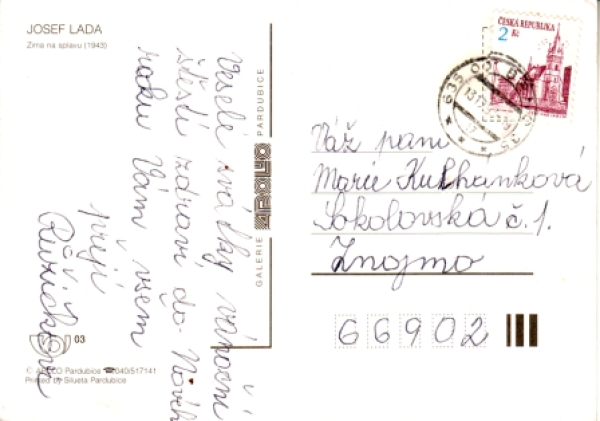 JOSEF LADA
Zima na splavu (1943)
Veselé svátky vánoční
štěstí zdraví do Nových
roku Vám všem
přejí
Růžičkovi
GALERIE APOLLO PARDUBICE
03
© APOLLO Pardubice ☎040/517141
Printed by Silueta Pardubice
ČESKÁ REPUBLIKA
2 Kč
635 00 BRNO 35
Váž paní
Marie Kulhanková
Sokolovská č. 1.
Znojmo
66902